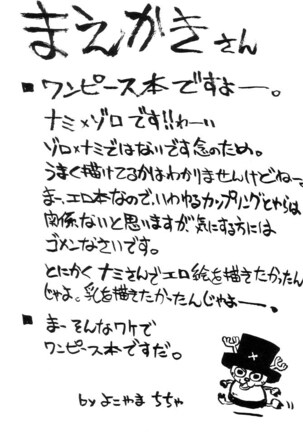 まえがきさん
■ワンピース本ですよー。
ナミ×ゾロです!!わーい
ゾロ×ナミではないです念のため。
うまく描けてるかはわかりませんけどねー。
まー、エロ本なので、いわゆるカップリングとやらは
関係ないと思いますが、気にする方には
ゴメンなさいです。
とにかくナミさんでエロ絵を描きたかったん
じゃよ。乳を描きたかったんじゃよー、
■まーそんなワケで
ワンピース本ですだ。
by よこやま ちちゃ